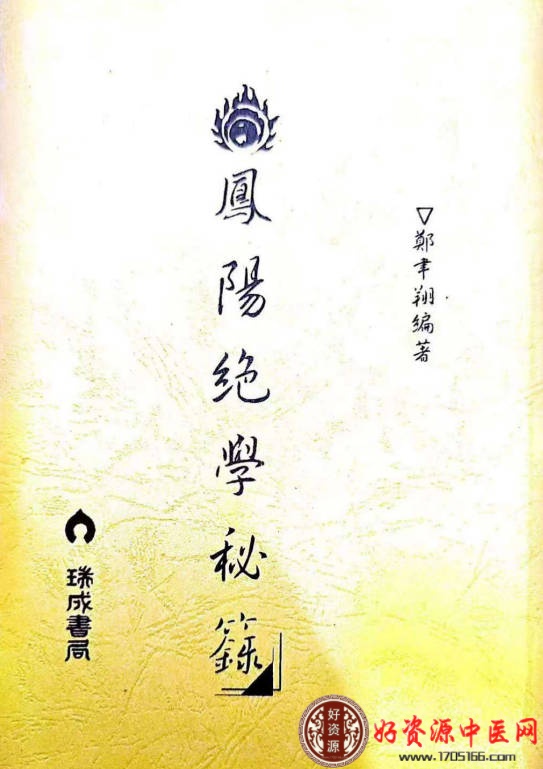 ▽鄭聿翔編著
鳳陽絕學秘籙
瑞成書局
好资源
好资源中医网
www.1705166.com